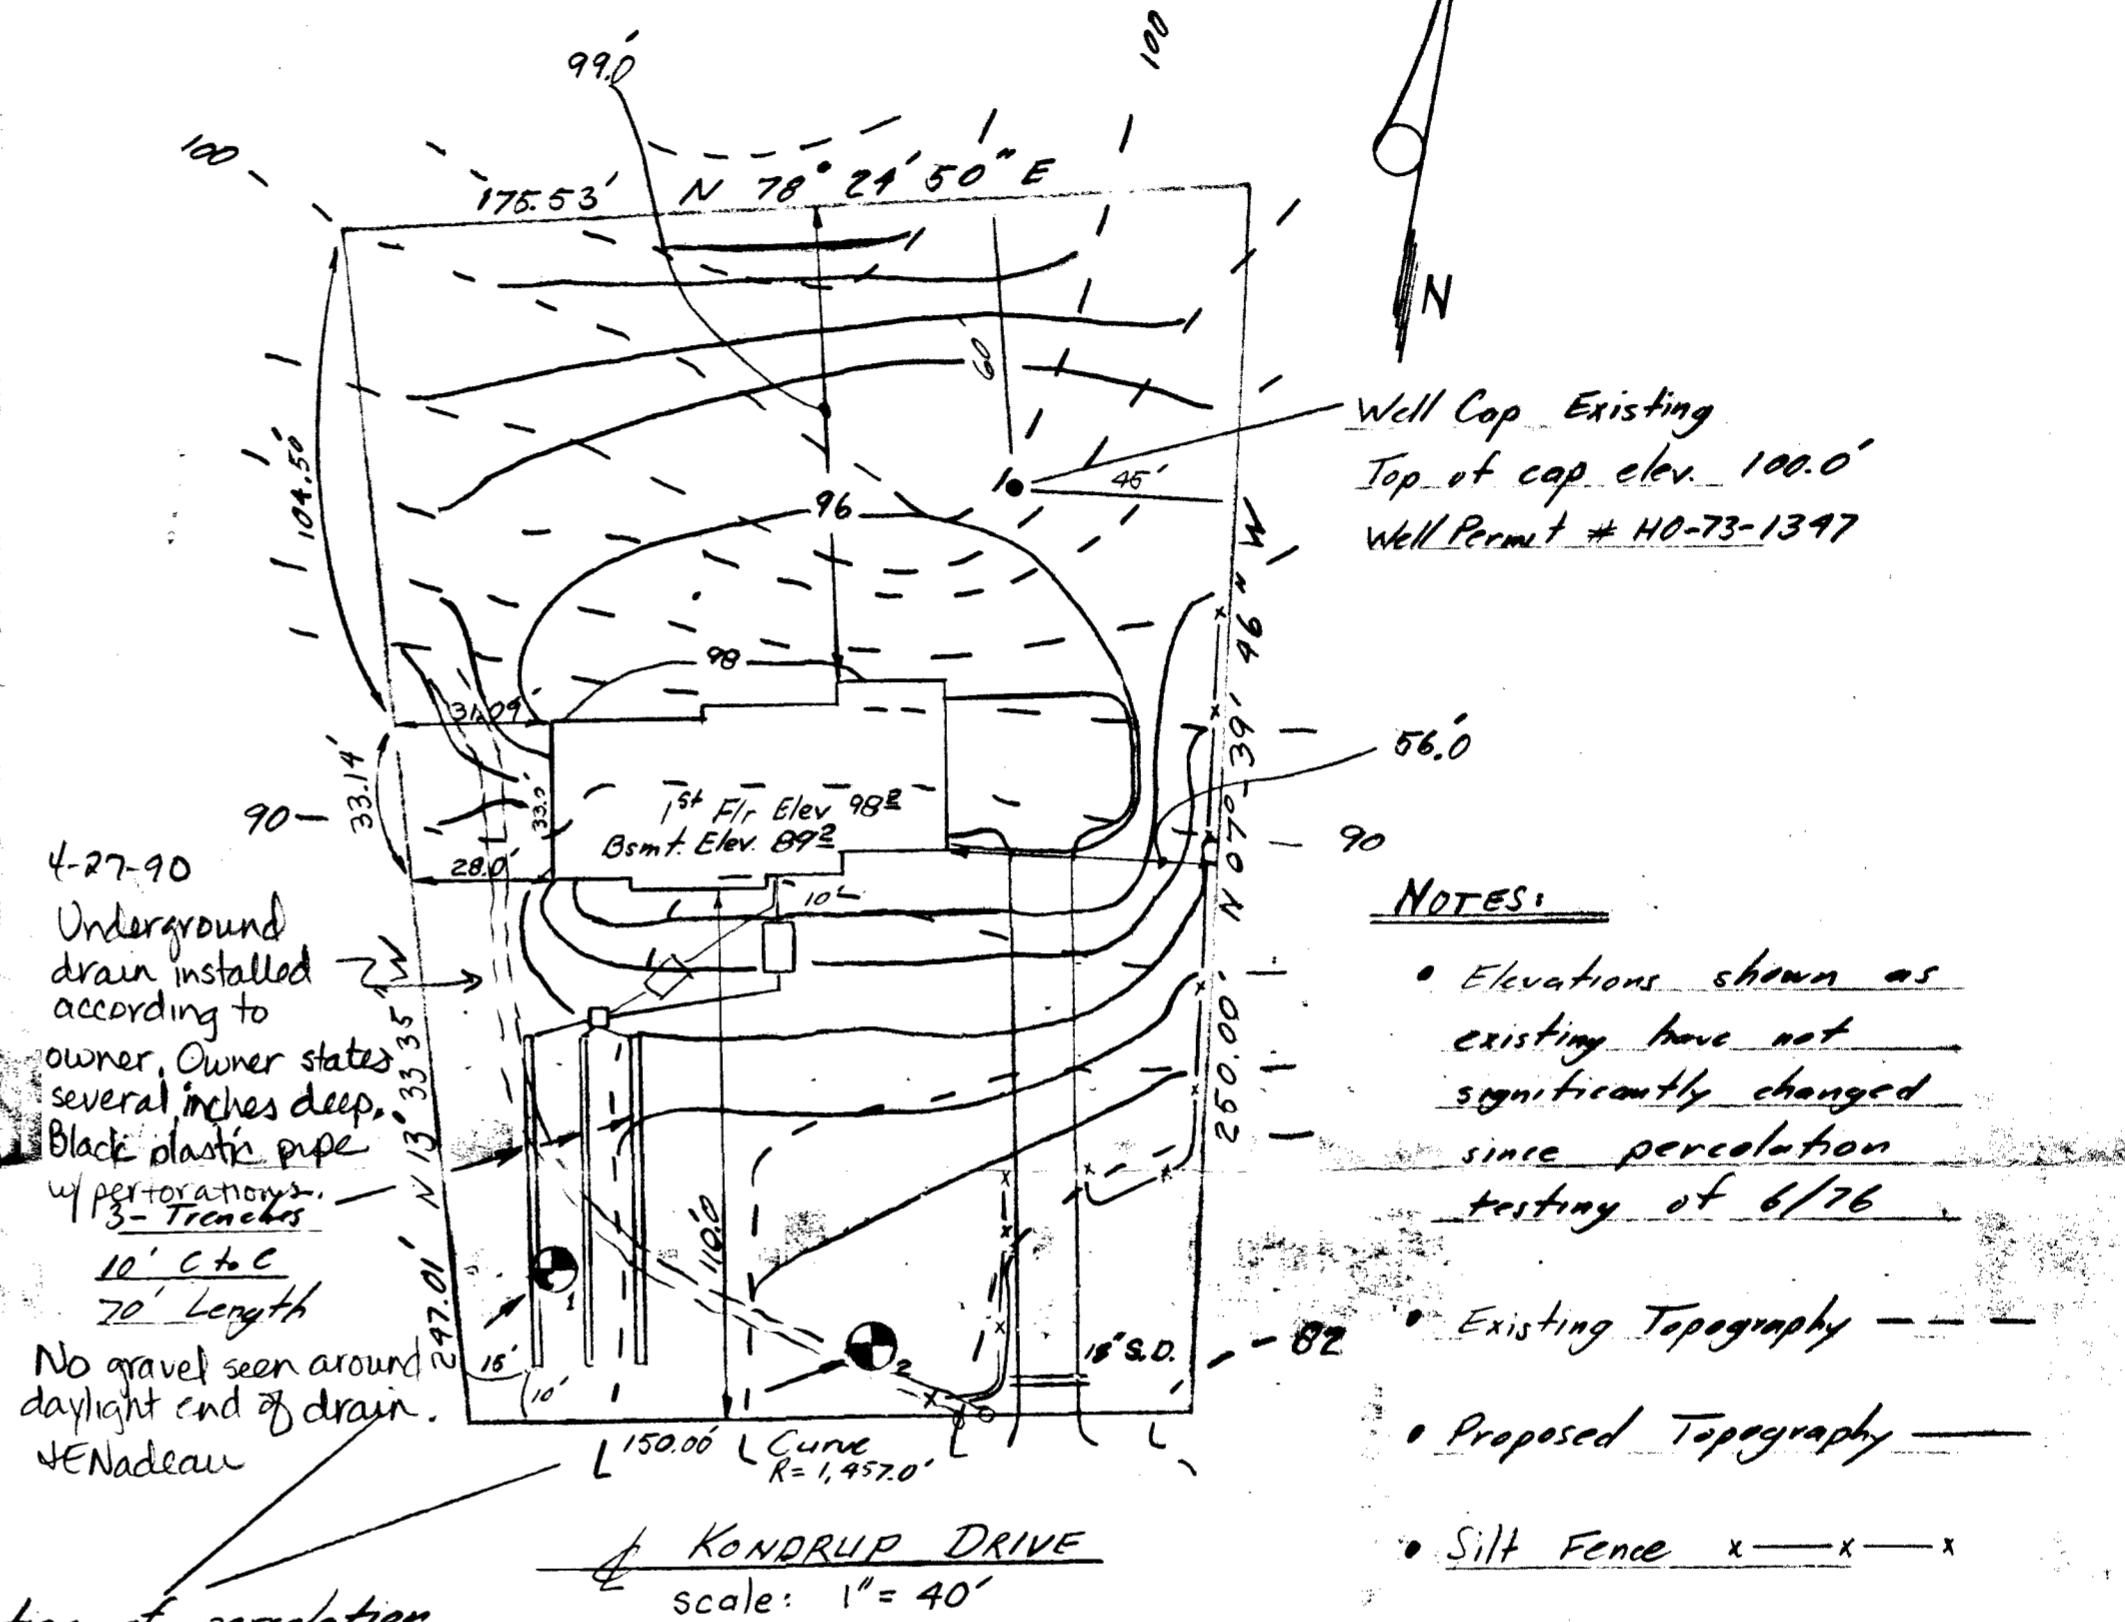 99.0'
100
100
175.53' N 78° 24' 50" E
N
60'
Well Cap Existing
Top of cap elev. 100.0'
Well Permit # HO-73-1347
45'
104.50'
96
98
31.09'
33.14'
33.0'
28.0'
1st Flr Elev 98.2
Bsmt. Elev. 89.2
56.0'
90
90
10'
N 07° 39' 46" W
250.00'
4-27-90
Underground
drain installed
according to
owner. Owner states
several inches deep.
Black plastic pipe
w/ perforations.
3- Trenches
10' C to C
70' Length
No gravel seen around
daylight end of drain.
JENadeau
247.01' N 13° 33' 35" W
110.0'
1
2
15'
10'
18" S.D.
82
150.00'
Curve
R= 1,457.0'
NOTES:
• Elevations shown as
existing have not
significantly changed
since percolation
testing of 6/76
• Existing Topography
• Proposed Topography
• Silt Fence x—x—x
℄ KONDRUP DRIVE
scale: 1" = 40'
of percolation